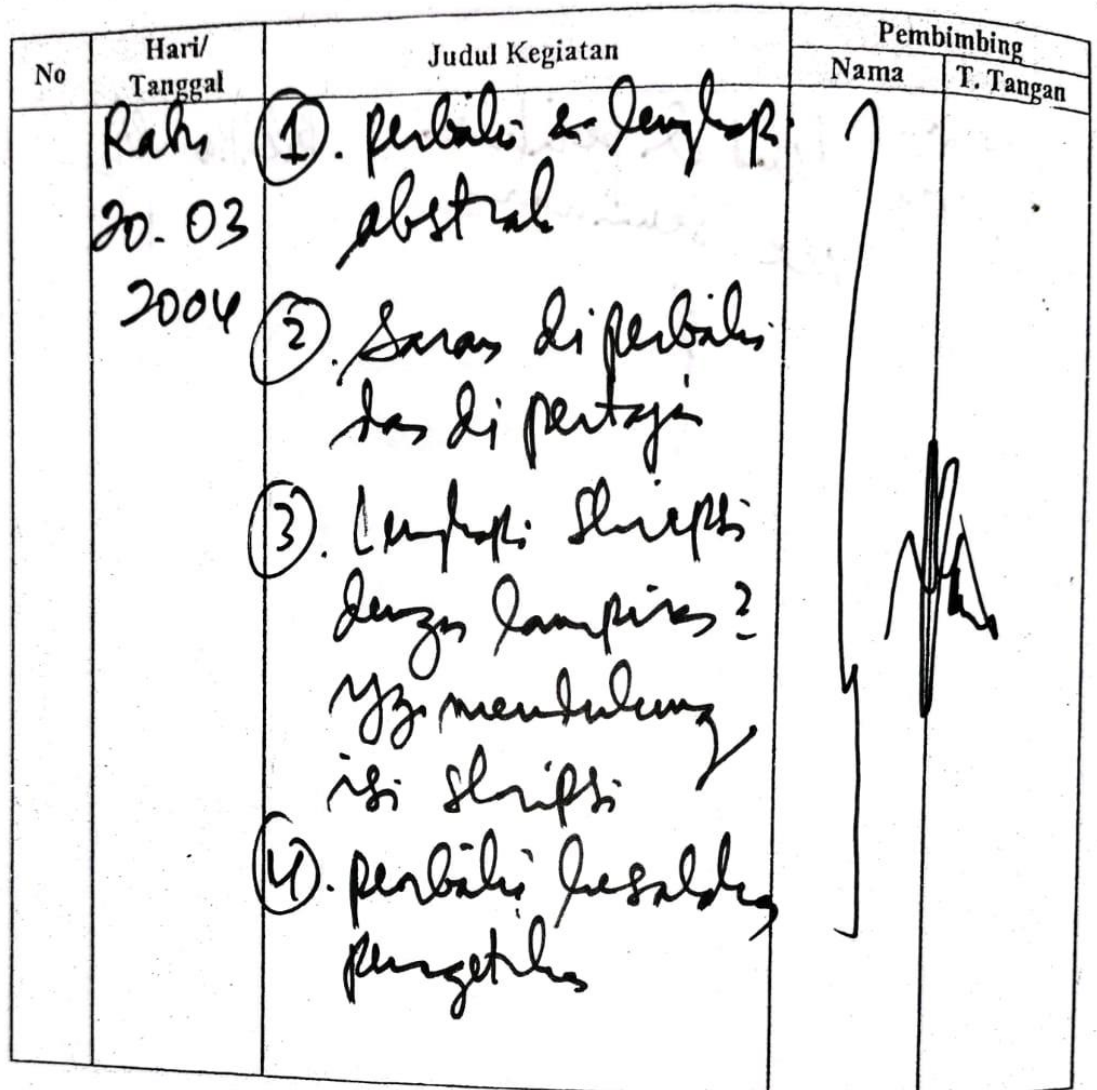 No
Hari/
Tanggal
Judul Kegiatan
Pembimbing
Nama
T. Tangan
Rabu
20. 03
2004
1. perbaiki & lengkapi
abstrak
2. Saran di perbaiki
dan di pertajam
3. Lengkapi Skripsi
dengan lampiran2
yg. mendukung
isi skripsi
4. perbaiki kesalahan
pengetikan